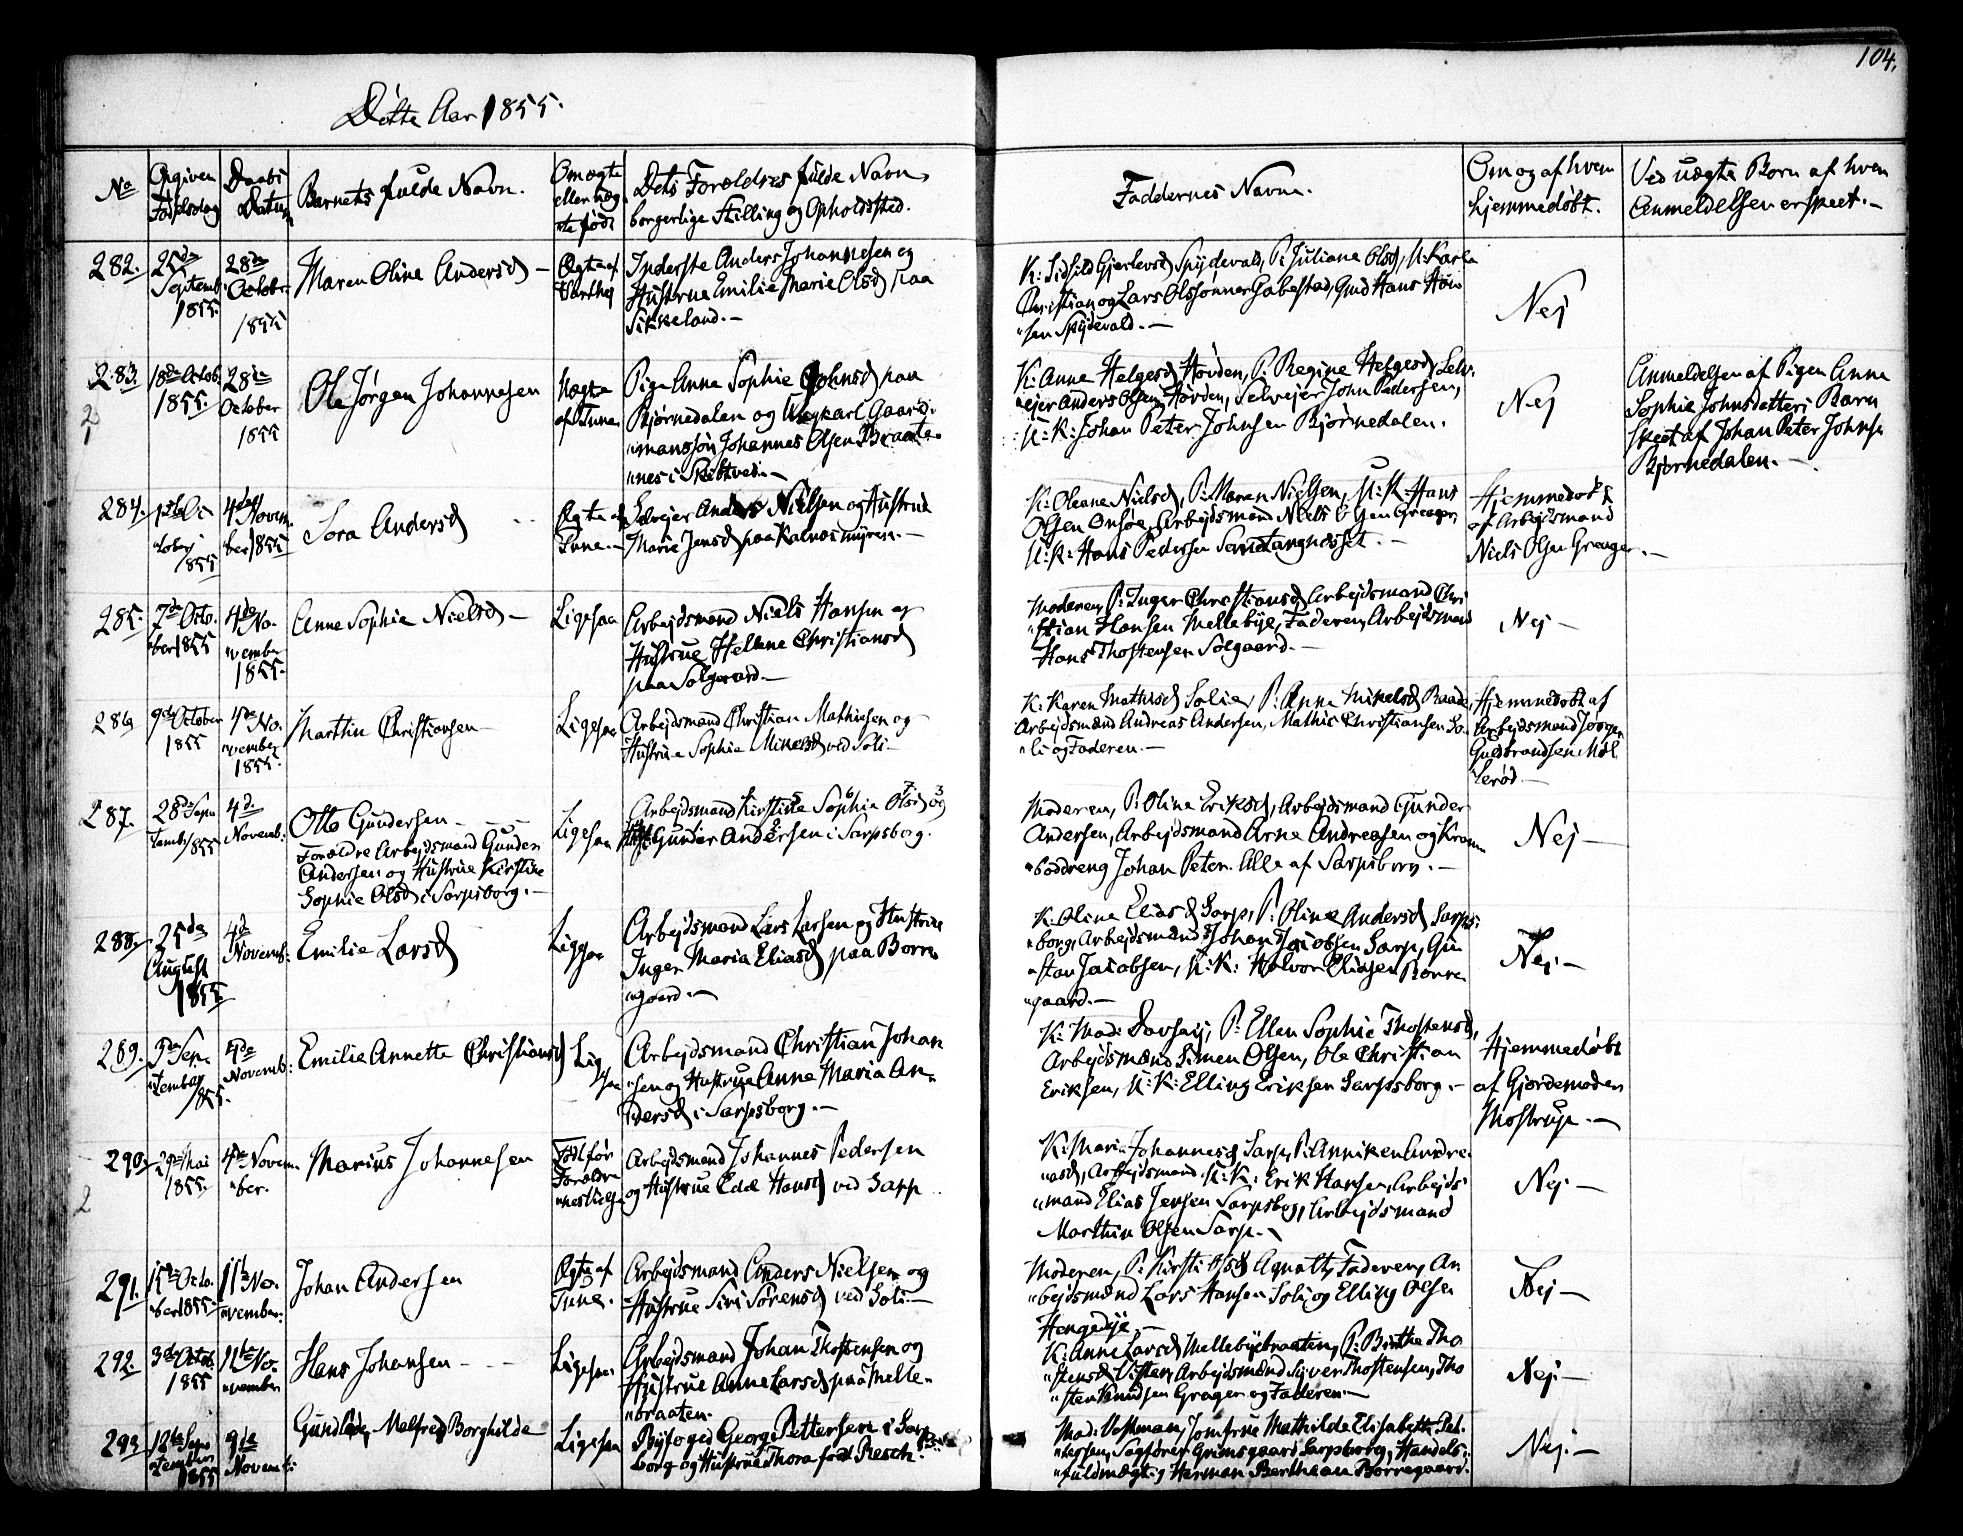 104.
Døbte Aar 1855.
No
Opgiven
Fødselsdag
Daabs
Datum
Barnets fulde Navn.
Om ægte
eller uæg
"te født
Dets Forældres fulde Navn,
borgerlige Stilling og Opholdssted.
Faddernes Navne.
Om og af hvem
hjemmedøbt.
Ved uægte Børn af hvem
Anmeldelsen er skeet.-
282.
25de
Septemb.
1855.
28de
October
1855
Maren Oline Andersd -
Ægte af
Inderste Anders Johannesen og
Hustrue Emilie Marie Olsd paa
Sikkeland.-
K: Gjerlevsd Spydevold, P: Juliane Olsd, U: Karle
Christian og Lars Olssønner Gabestad, Gmd Hans Han
"sen Spydevold.-
Nej
283.
18de Octob.
1855.
28de
October
1855
Ole Jørgen Johannesen
Uægte
af Tune
Pige Anna Sophie Johnsd paa
Bjørnedalen og Ungkarl Gaard-
"mandssøn Johannes Olsen Braate-
"nes i Skibtved.-
K: Anne Helgesd Hovden, P: Regine Helgesd, Selv-
"ejer Anders Olsen Hovden, Selvejer John Pedersen,
U: K: Johan Peter Johnsen Bjørnedalen.
Nej
Anmeldelsen af Pigen Anna
Sophie Johnsdatters Barn
skeet af Johan Peter Johnsen
Bjørnedalen.-
2
284.
1ste Oc
"tober
1855
4de Novem
"ber 1855
Sora Andersd
Ægte af
Tune.-
Selvejer Anders Nielsen og Hustrue
Marie Jensd paa Kalnæsmyren.-
K: Oleane Nielsd, P: Maren Nielsen, U: K: Hans
Olsen Onsøe, Arbejdsmand Niels Olsen Greager,
U: K: Hans Pedersen Sandtangnæsset.-
Hjemmedøbt
af Arbejdsmand
Niels Olsen Greager.-
285.
7de Octo-
"ber 1855
4de No-
"vember
1855.
Anne Sophie Nielsd -
Ligesaa
Arbejdsmand Niels Hansen og
Hustrue Helene Christiansd
paa Solgaard.-
Moderen, P: Inger Christiansd, Arbejdsmand Chri
"stian Hansen Mellebye, Faderen, Arbejdsmand
Hans Thostensen Solgaard.-
Nej -
286
9de October
1855
4de No-
"vember
1855.
Marthin Christiansen -
Ligesaa
Arbejdsmand Christian Mathiesen og
Hustrue Sophie Mikelsd ved Soli-
K: Karen Mathisd Solie, P: Anne Mikelsd Raade,
Arbejdsmænd Andreas Andersen, Mathis Christiansen So-
"li og Faderen.-
Hjemmedøbt af
Arbejdsmand Jørgen
Guldbrandsen Møl
"lerød.-
287.
28de Sept
"tember 1855
4de
Novemb:
Otto Gundersen -
Forældre Arbejdsmand Gunder
Andersen og Hustrue Kirstine
Sophie Olsd i Sarpsborg.-
Ligesaa
Arbejdsmand Kirstine Sophie Olsd og
Gunder Andersen i Sarpsborg.
Moderen, P: Oline Eriksd, Arbejdsmand Gunder
Andersen, Arbejdsmand Arne Andreasen og Kram-
"boddreng Johan Peter. Alle af Sarpsborg.-
Nej -
288.
25de
August
1855
4de
Novemb:
Emilie Larsd
Ligesaa
Arbejdsmand Lars Larsen og Hustrue
Inger Maria Eliasd paa Borre-
"gaard.-
K: Oline Eliasd Sarp, P: Oline Andersd Sarps-
"borg, Arbejdsmænd Johan Jacobsen Sarp, Gu
"stav Jacobsen, U: K: Halvor Eliasen Borre-
gaard.-
Nej:-
289.
9de Sep-
"tember
1855.
4de
Novemb:
Emilie Annette Christiansd
Lige
saa
Arbejdsmand Christian Johan
"sen og Hustrue Anne Maria An-
"dersd i Sarpsborg.-
K: Mad: P: Ellen Sophie Thostensd,
Arbejdsmænd Simen Olsen, Ole Christian
Eriksen, U: K: Elling Eriksen Sarpsborg.-
Hjemmedøbt
af Gjordemoder
Mostrup.-
290.
29de Mai
1855.
4de Novem
"ber.
Marius Johannesen
Født før
Forældre
"nes
Arbejdsmand Johannes Pedersen
og Hustrue Edle Hansd ved Sarp
K: Marie Johannesd Sarp, P: Anniken Andre-
"asd, Arbejdsmand U: K: Erik Hansen, Arbejds-
"mand Elias Jensen Sarpsborg, Arbejdsmand
Marthin Olsen Sarp.-
Nej:-
2
291.
15de Octo-
"ber 1855.
11te No-
"vember:
Johan Andersen
Ægte af
Tune.
Arbejdsmand Anders Nielsen og
Hustrue Siri Sørensd ved Soli.-
Moderen, P: Kirsti Olsd Agnalt, Faderen, Ar
"bejdsmænd Lars Hansen Soli og Elling Olsen
Hengedye.-
Nej -
292.
3de Octob.
1855
11te No-
"vember
Hans Johansen -
Ligesaa
Arbejdsmand Johan Thostensen og
Hustrue Anne Larsd paa Melle-
"braaten.
K: Anne Larsd Mellebyebraaten, P: Birthe Tho
"stensd Visten, Arbejdsmænd Syver Thostensen, Tho
"sten Knudsen Greager og Faderen.-
Nej:-
293
12te Sep-
"tember
1855
9de
Novemb:
Malfred Borghilde
Ligesaa
Byfoged Georg Pettersen i Sarps-
borg og Hustrue Thora født Resch.
Mad: Vestman, Jomfrue Mathilde Elisabeth Pet-
"tersen, Sagfører Grimsgaard Sarpsborg, Handels-
"fuldmægtig Herman Berthean Borregaard.
Nej:-